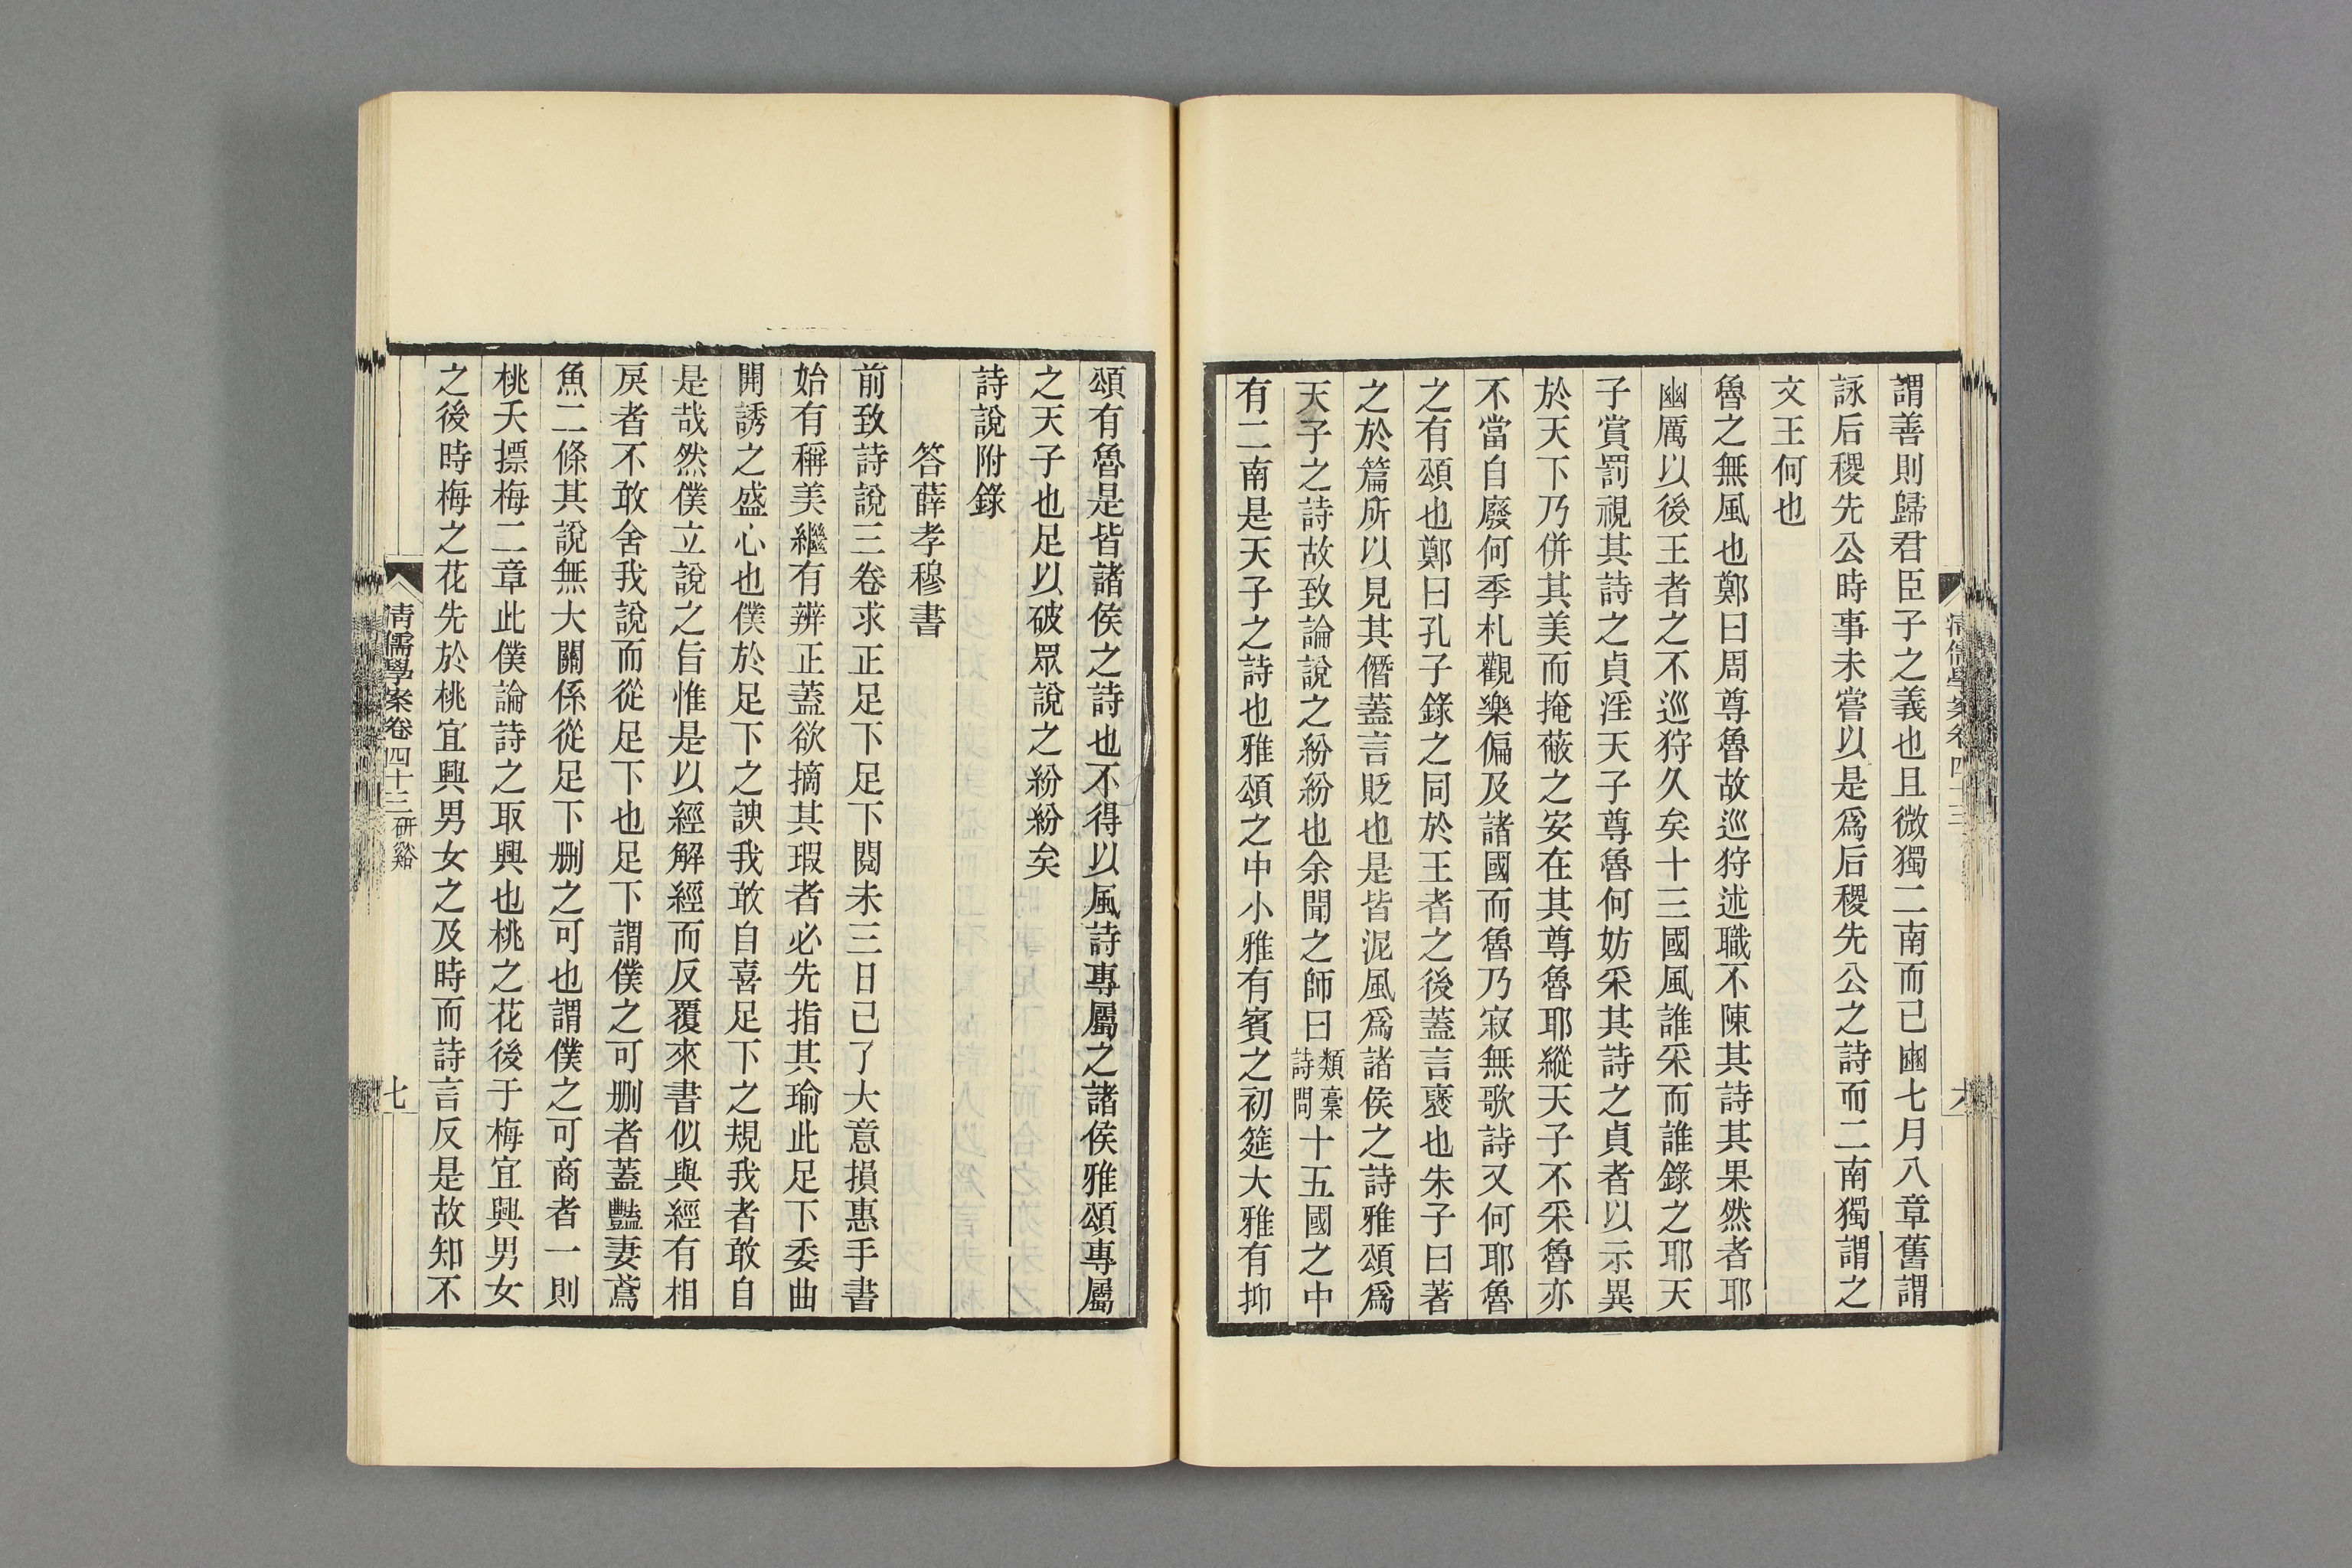 謂善則歸君臣子之義也且微獨二南而已豳七月八章舊謂
詠后稷先公時事未嘗以是爲后稷先公之詩而二南獨謂之
文王何也
魯之無風也鄭曰周尊魯故巡狩述職不陳其詩其果然者耶
豳厲以後王者之不巡狩久矣十三國風誰采而誰錄之耶天
子賞罰視其詩之貞淫天子尊魯何妨采其詩之貞者以示異
於天下乃併其美而掩蔽之安在其尊魯耶縱天子不采魯亦
不當自廢何季札觀樂偏及諸國而魯乃寂無歌詩又何耶魯
之有頌也鄭曰孔子錄之同於王者之後蓋言襃也朱子曰著
之於篇所以見其僭蓋言貶也是皆泥風爲諸侯之詩雅頌爲
天子之詩故致論說之紛紛也余聞之師曰類稾詩問十五國之中
有二南是天子之詩也雅頌之中小雅有賓之初筵大雅有抑
清儒學案卷四十三
六
頌有魯是皆諸侯之詩也不得以風詩專屬之諸侯雅頌專屬
之天子也足以破眾說之紛紛矣
詩說附錄
答薛孝穆書
前致詩說三卷求正足下足下閱未三日已了大意損惠手書
始有稱美繼有辨正蓋欲摘其瑕者必先指其瑜此足下委曲
開誘之盛心也僕於足下之諛我敢自喜足下之規我者敢自
是哉然僕立說之旨惟是以經解經而反覆來書似與經有相
戾者不敢舍我說而從足下也足下謂僕之可刪者蓋豔妻鳶
魚二條其說無大關係從足下刪之可也謂僕之可商者一則
桃夭摽梅二章此僕論詩之取興也桃之花後于梅宜興男女
之後時梅之花先於桃宜興男女之及時而詩言反是故知不
清儒學案卷四十三 研谿
七